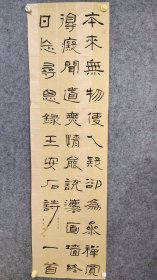 本來無物使人疑卻為參禪買
得癡聞道無情能說灋面墻終
日妄尋思錄王安石詩一首